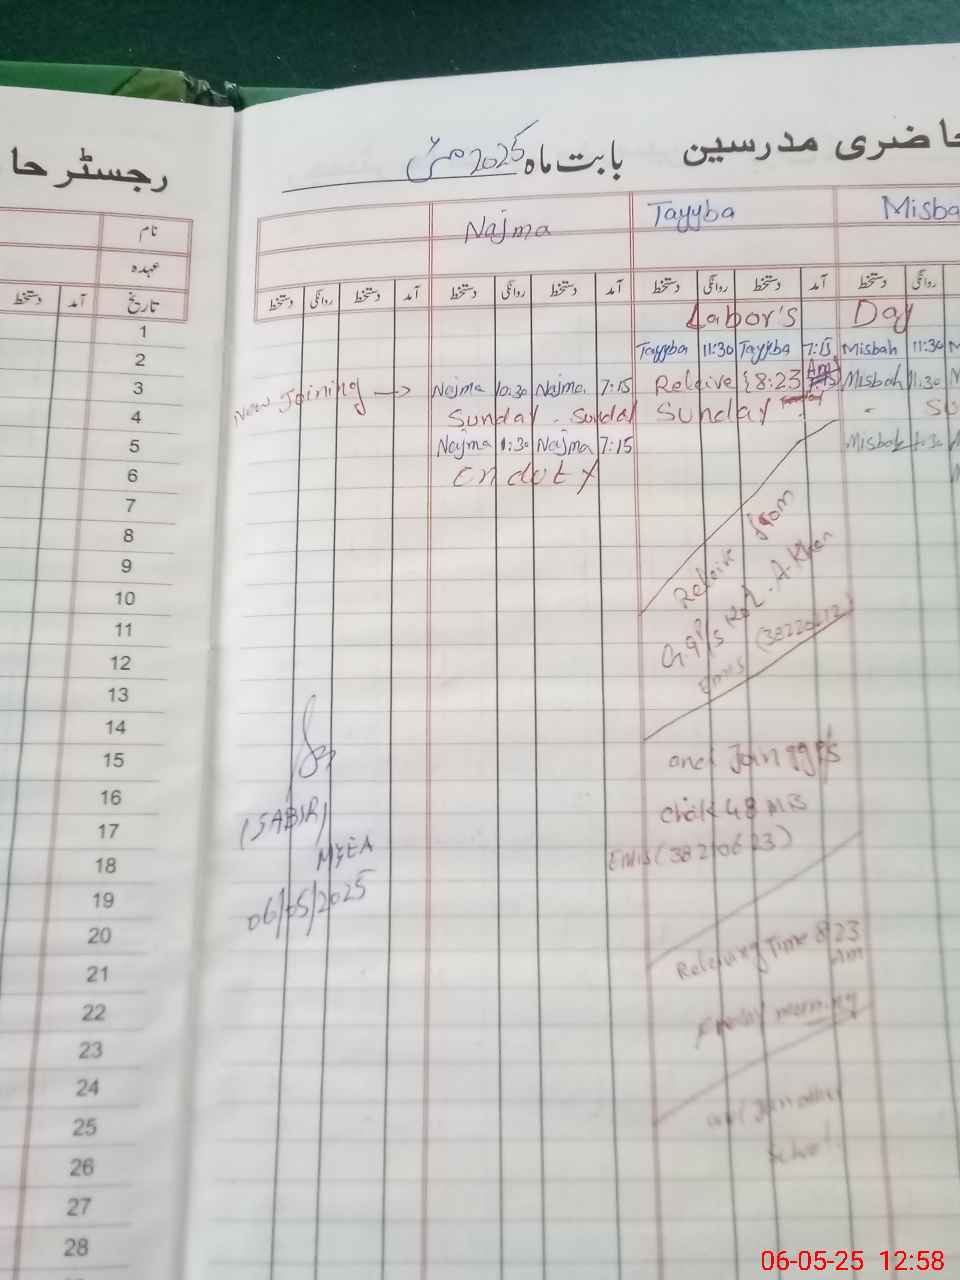 رجسٹر حا
حاضری مدرسین بابت ماہ مئی 2025
نام
Najma Tayyba Misba
عہدہ
تاریخ آمد دستخط
آمد دستخط روانگی دستخط آمد دستخط روانگی دستخط آمد دستخط روانگی دستخط روانگی دستخط
1 Labor's Day
2 Tayyba 11:30 Tayyba 7:15 Misbah 11:30 M
3 New Joining → Najma 10:30 Najma 7:15 Releive 8:23 Am Misbah 11:30
4 Sunday . Sunday Sunday - Su
5 Najma 1:30 Najma 7:15 Misbah 1:30
6 on duty
7
8
9
10
11
12
13
14
15
16
17
18
19
20
21
22
23
24
25
26
27
28
Releive from
A.Khan
EMIS (38220612)
and Join ggp's
Chak 48 MB
EMIS (38210623)
Releiving Time 8:23
Am
morning
and Join other
School.
(SABIR)
M&EA
06/05/2025
06-05-25 12:58